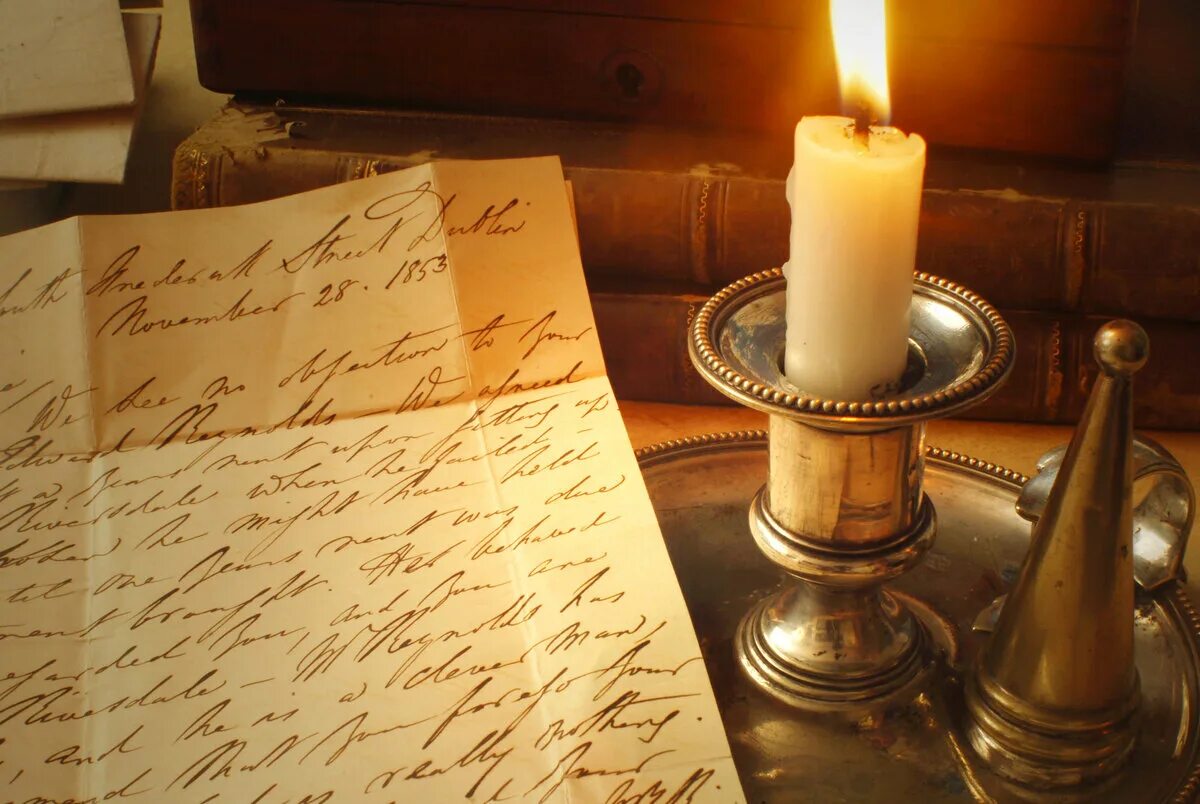 Frederick Street Dublin
November 28. 1853
We see no objection to your
Edward Reynolds – We agreed
a years rent upon fitting up
Riversdale when he failed –
he might have held
one years rent was due
ment brought. Has behaved
you, and you are
Riversdale – Mr Reynolds has
, and he is a clever man,
mand that you forego your
really nothing
your